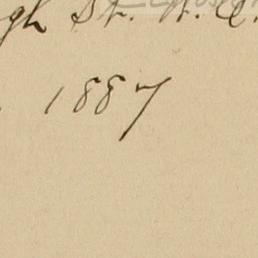 gh St. N. C.
1887